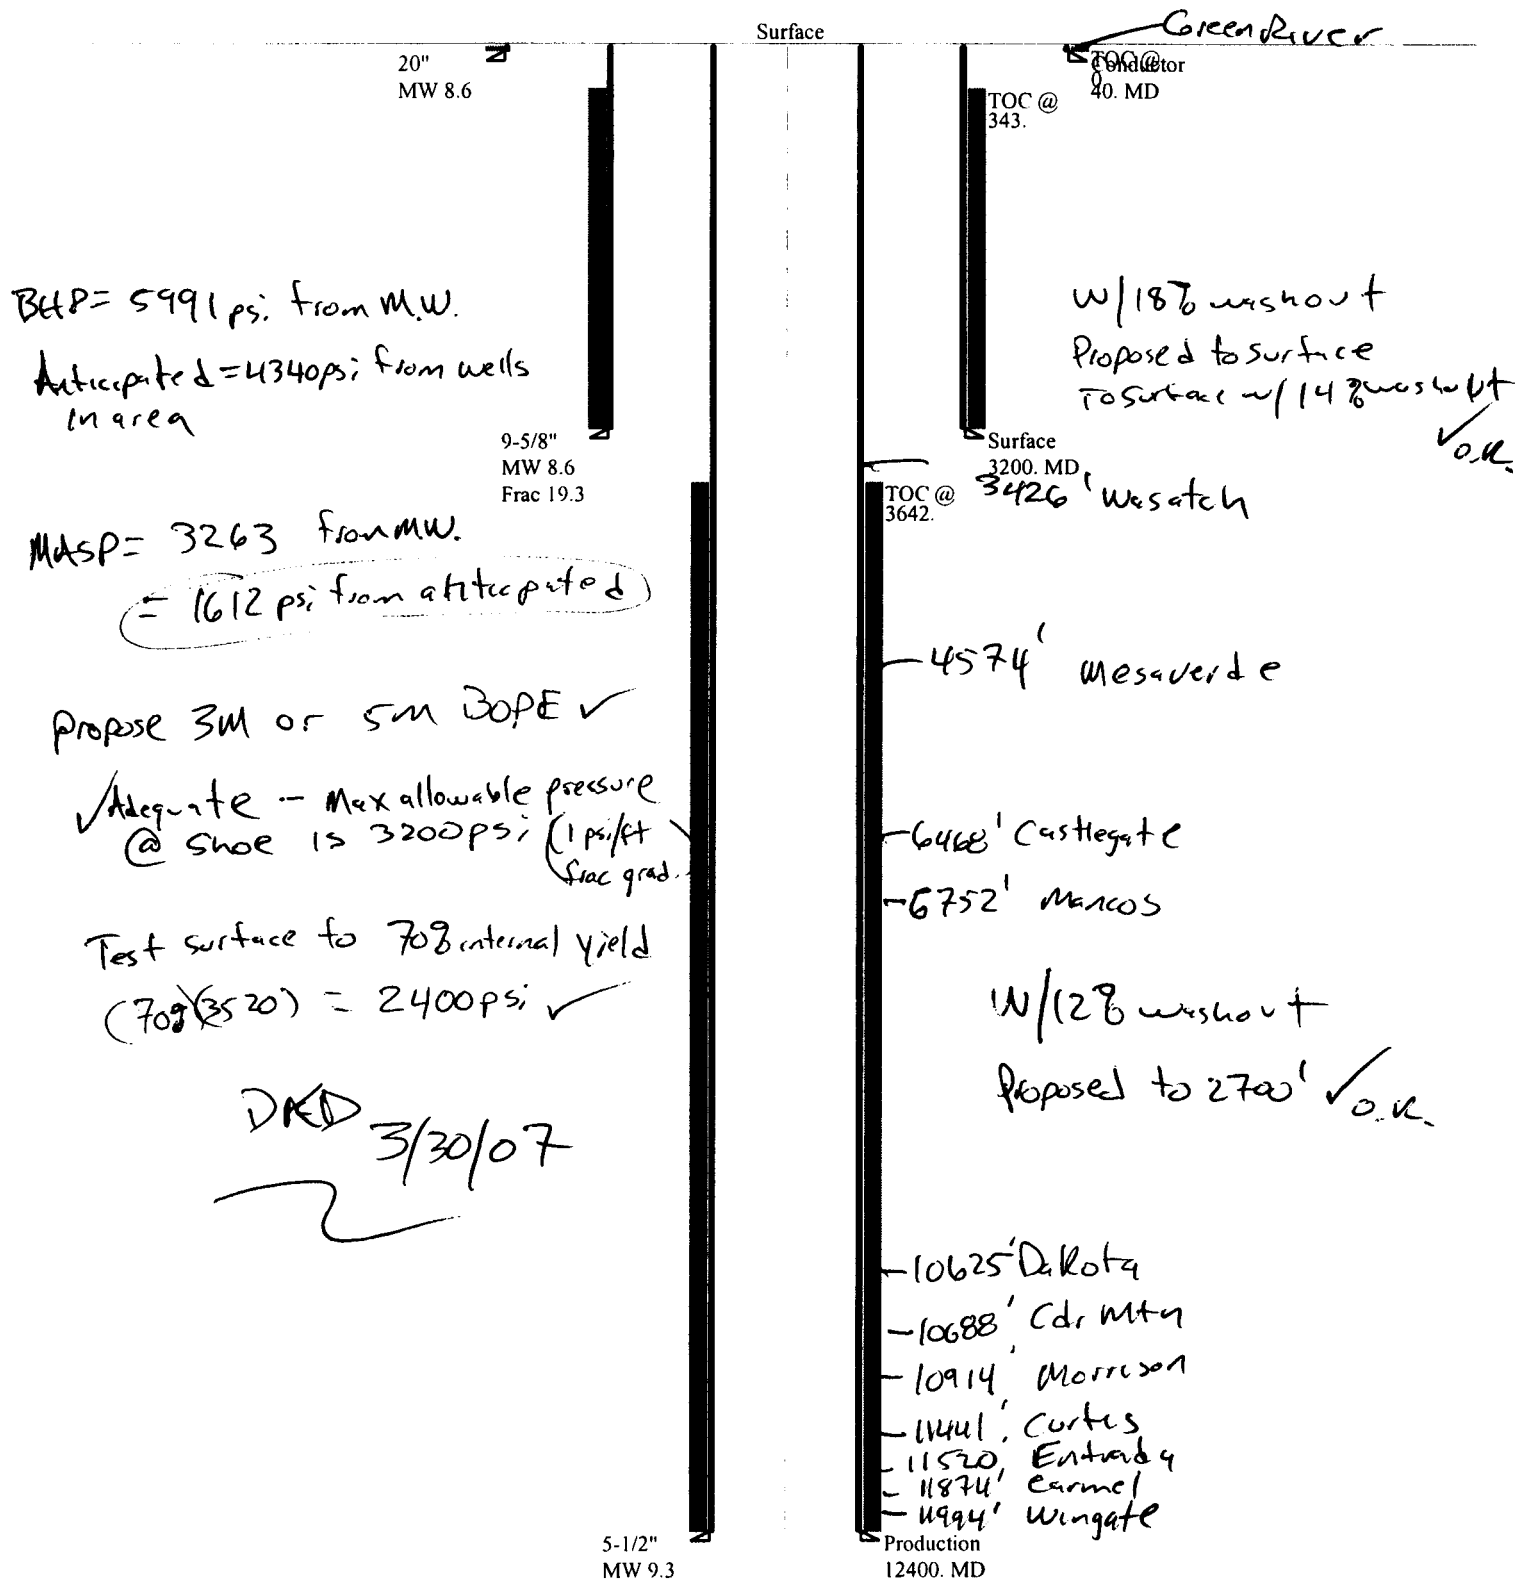 Surface
Green River
20"
MW 8.6
TOC @
0.
Conductor
40. MD
TOC @
343.
BHP = 5991 psi from M.W.
Anticipated = 4340psi from wells
in area
W/18% washout
Proposed to surface
To Surface w/ 14% washout
✓ O.K.
9-5/8"
MW 8.6
Frac 19.3
Surface
3200. MD
TOC @
3642.
3426' Wasatch
MASP = 3263 from MW.
= 1612 psi from anticipated
4574' Mesaverde
Propose 3M or 5M BOPE ✓
✓ Adequate - Max allowable pressure
@ shoe is 3200psi (1 psi/ft
frac grad.
6468' Castlegate
6752' Mancos
Test surface to 70% internal yield
(70%)(3520) = 2400psi ✓
W/12% washout
Proposed to 2700' ✓ O.K.
DKD 3/30/07
10625' Dakota
10688' Cdr Mtn
10914' Morrison
11441' Curtis
11520' Entrada
11874' Carmel
11994' Wingate
5-1/2"
MW 9.3
Production
12400. MD